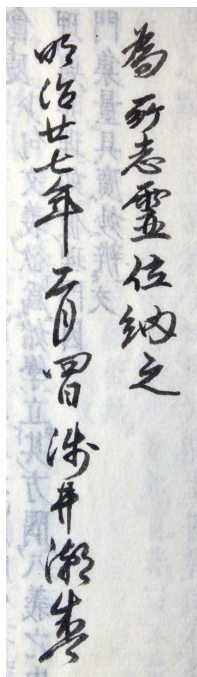 為所志霊位納之
明治廿七年二月四日浅井潮春